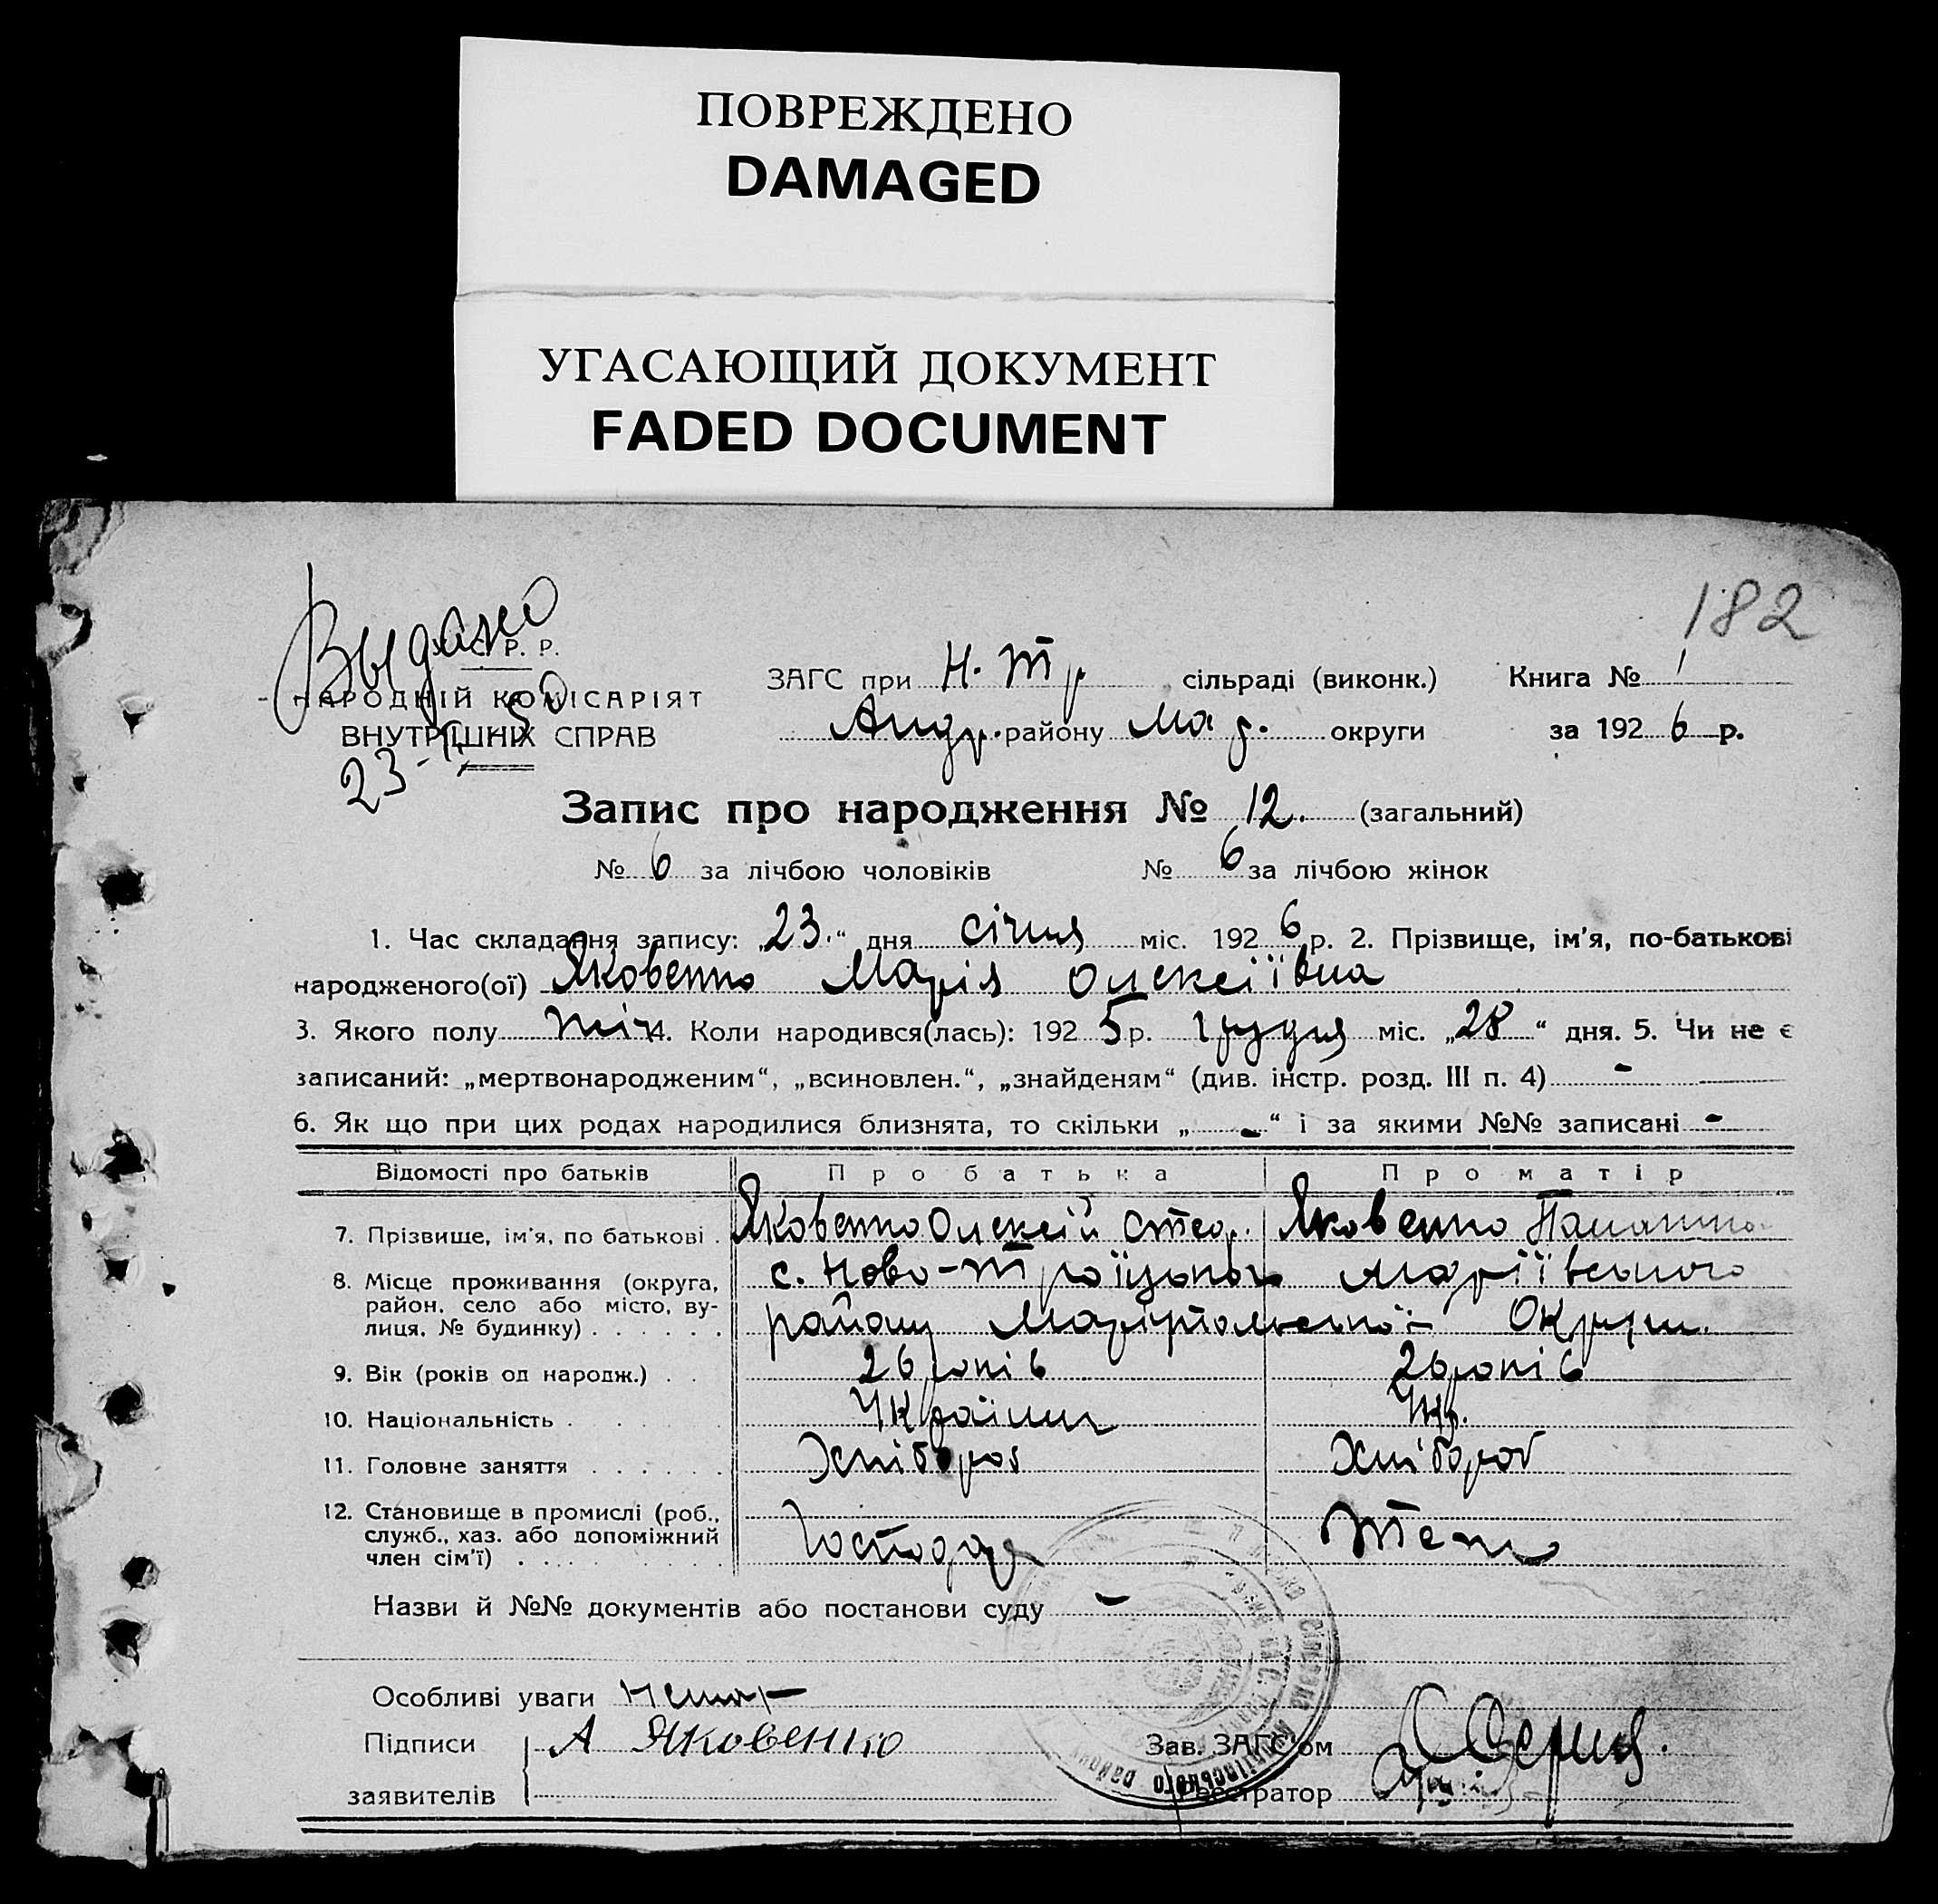 ПОВРЕЖДЕНО
DAMAGED
УГАСАЮЩИЙ ДОКУМЕНТ
FADED DOCUMENT
182
Выдано
Р. Р.
НАРОДНІЙ КОМІСАРІЯТ
ВНУТРІШНІХ СПРАВ
23
ЗАГС при Н. Тр сільраді (виконк.) Книга № 1
Андр. району Мар. округи за 1926 р.
Запис про народження № 12. (загальний)
№ 6 за лічбою чоловіків № 6 за лічбою жінок
1. Час складання запису: „23.“ дня січня міс. 1926 р. 2. Прізвище, ім'я, по-батькові
народженого(ої) Яковенко Марія Олексіївна
3. Якого полу жіч 4. Коли народився(лась): 1925 р. грудня міс. „28“ дня. 5. Чи не є
записаний: „мертвонародженим“, „всиновлен.“, „знайденям“ (див. інстр. розд. III п. 4) -
6. Як що при цих родах народилися близнята, то скільки „-“ і за якими №№ записані -
Відомості про батьків Про батька Про матір
7. Прізвище, ім'я, по батькові . Яковенко Олексій Яковенко
8. Місце проживання (округа, с. Ново-Троїцького Маріївського
район, село або місто, ву-
лиця, № будинку) . . . . . . району Маріупольської Округи.
9. Вік (років од народж.) . . 26 років 26 років
10. Національність . . . . Україн Укр.
11. Головне заняття . . . . . . Хлібороб Хлібороб
12. Становище в промислі (роб.,
служб., хаз. або допоміжний
член сім'ї) . . . . . . . . . Господар
Назви й №№ документів або постанови суду -
Особливі уваги Немає
Підписи А Яковенко Зав. ЗАГС'ом
заявителів Реєстратор